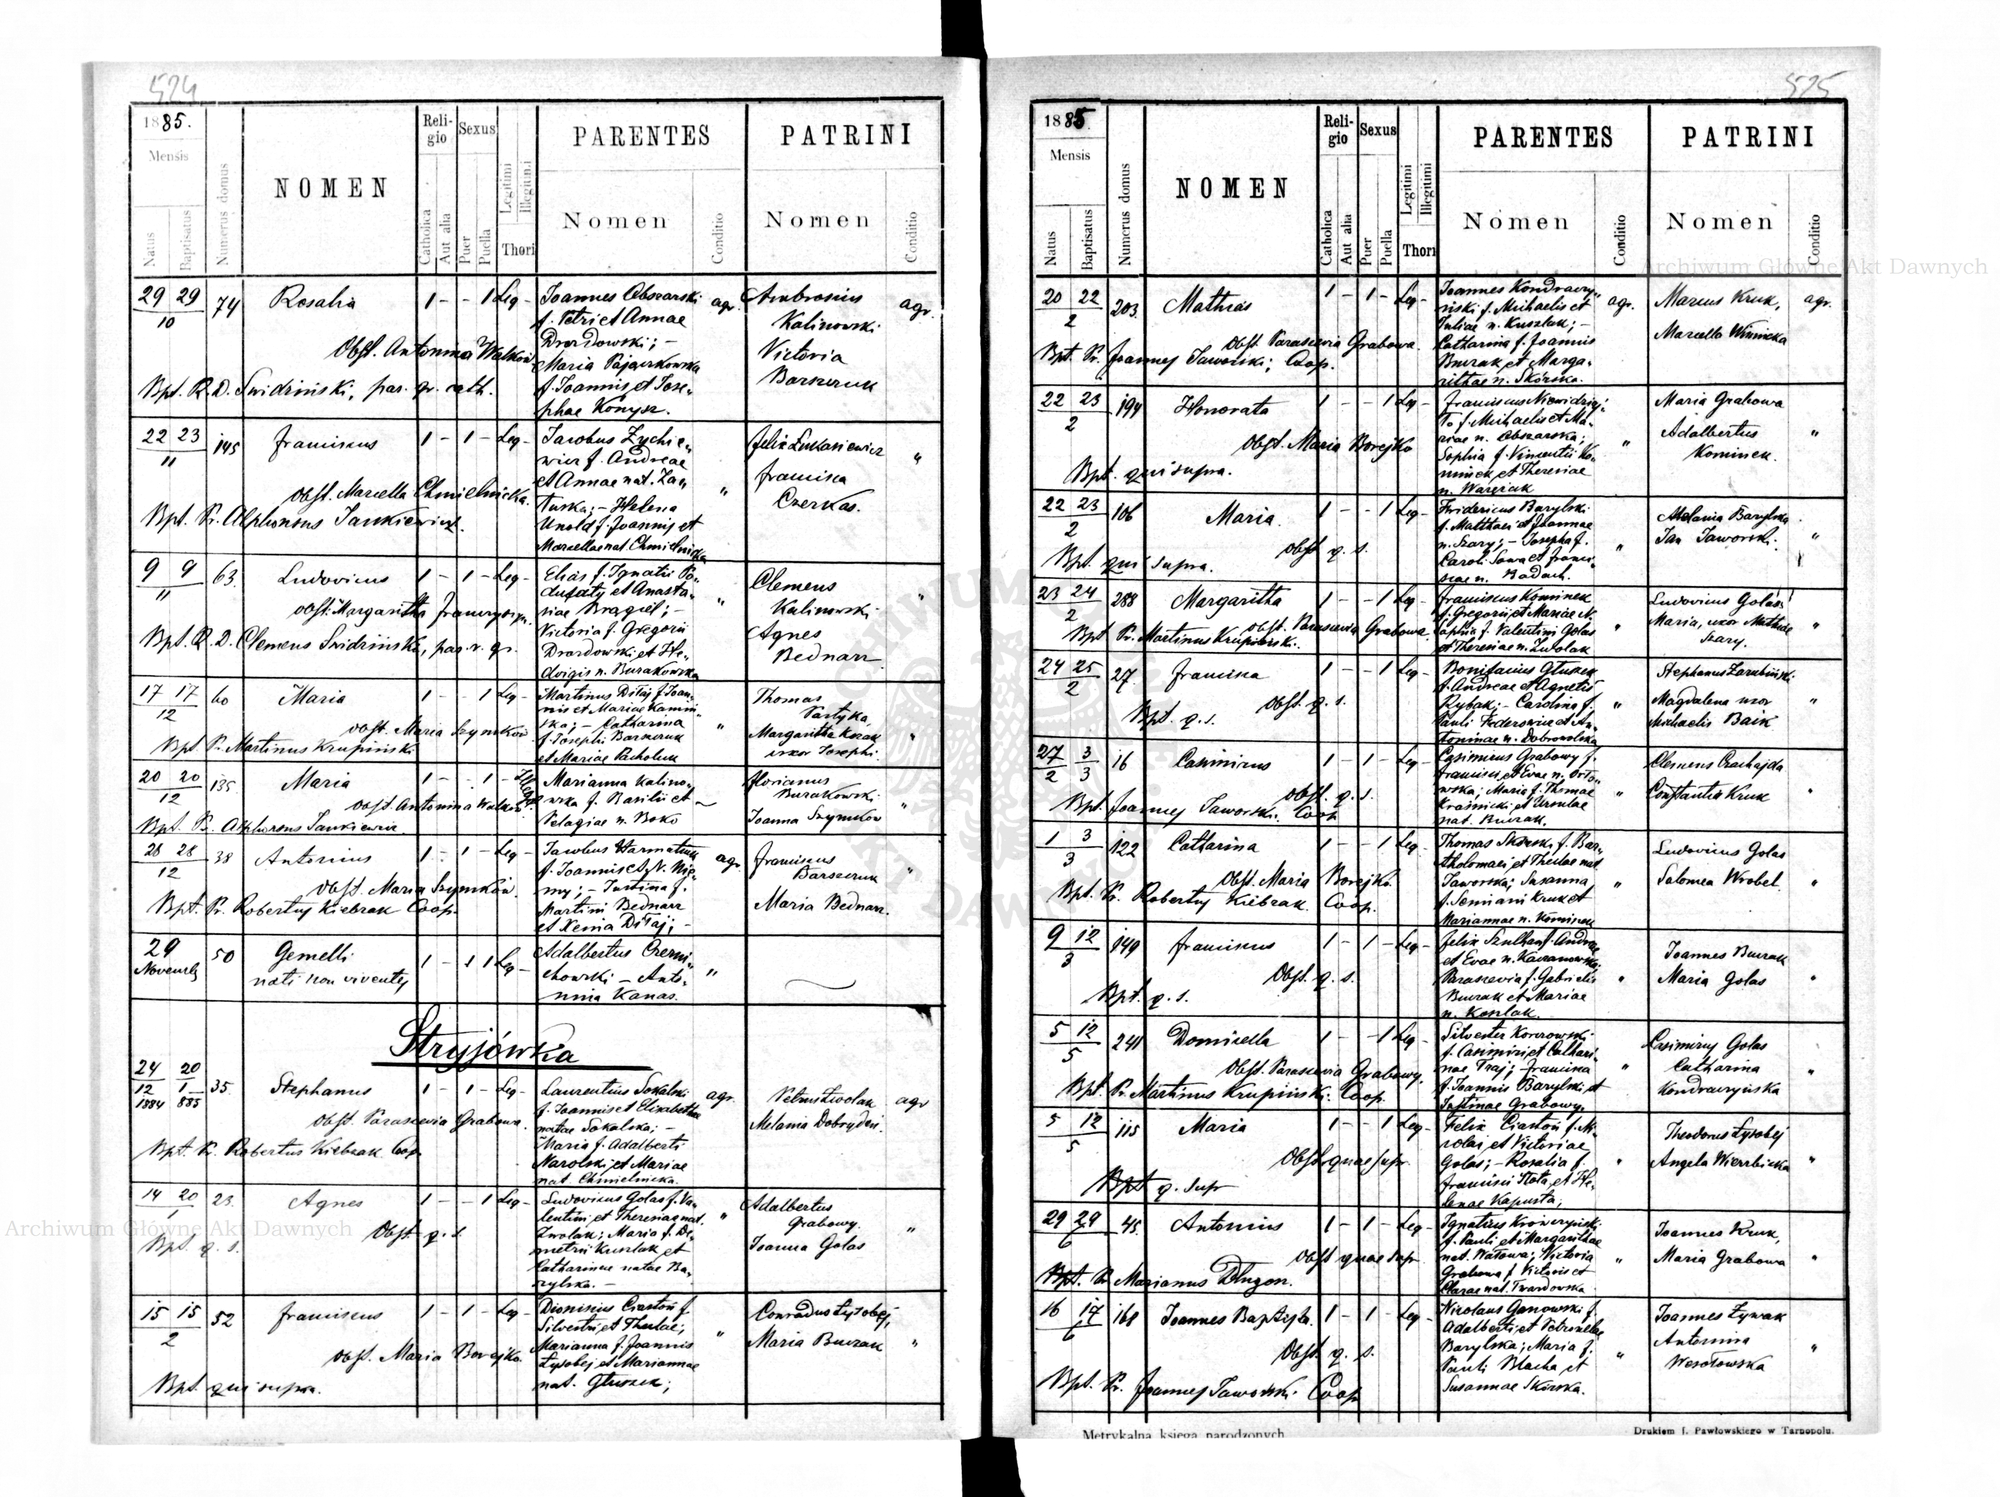 524
1885.
Mensis
Natus
Baptisatus
Numerus domus
NOMEN
Religio
Catholica
Aut alia
Sexus
Puer
Puella
Legitimi
Illegitimi
Thori
PARENTES
Nomen
Conditio
PATRINI
Nomen
Conditio
29 29 74 Rosalia 1 - - 1 Leg - Joannes Obszarski agr. Ambrosius agr.
10 f. Petri et Annae Kalinowski
Drozdowski; - Victoria
Obst. Antonina Walków Maria Pajączkowska Barszczuk
Bpt. R. D. Swidziński, par. gr. cath. f. Joannis et Jose-
phae Konysz.
22 23 145 Franciscus 1 - 1 - Leg - Jacobus Zychie- Felix Lukasiewicz "
11 wicz f. Andreae Francisca
et Annae nat. Za- Czerkas.
Obst. Marcella Chmielnicka. Helena
Bpt. Pr. Alphonsus Jankiewicz. Unold f. Joannis et
Marcellae nat. Chmielnicka
9 9 63. Ludovicus 1 - 1 - Leg - Elias f. Ignatii Po- Clemens "
11 et Anasta- Kalinowski
Obst. Margaritha siae Bragiel; - Agnes
Bpt. R. D. Clemens Swidziński, par. r. gr. Victoria f. Gregorii Bednarz
Drozdowski et He-
dvigis n. Burakowska
17 17 60 Maria 1 - - 1 Leg - Martinus Ditaj f. Joan- Thomas
12 nis et Mariae Kamin-
Obst. Maria Szymków ska; - Catharina Margaritha Kozak
Bpt. Pr. Martinus Krupiński f. Josephi Barszczuk uxor Josephi.
et Mariae Pacholuk
20 20 135 Maria 1 - - 1 - Illeg. Marianna Kalino- Florianus
12 wska f. Basilii et Burakowski
Obst. Antonina Walków Pelagiae n. Boko Joanna Szymków
Bpt. Pr. Alphonsus Jankiewicz
28 28 38 Antonius 1 - 1 - Leg - Jacobus Harmatiuk agr. Franciscus
12 f. Joannis et N. Nie- Barszczuk
Obst. Maria Szymków. my; - Justina f. Maria Bednarz.
Bpt. Pr. Robertus Kiebzak Coop. Martini Bednarz
et Xenia Ditaj; -
29 50 Gemelli 1 - 1 1 Leg - Adalbertus Czerni- "
Novembr nati non viventes chowski - Anto-
nina Kanas.
Stryjówka
24 20 35 Stephanus 1 - 1 - Leg - Laurentius Sokalski agr. Petrus Zwolak agr
12 1 f. Joannis et Elisabethae Melania Dobrydzi.
1884 885 Obst. Parascevia Grabowa. natae Sokalska; -
Maria f. Adalberti
Bpt. Pr. Robertus Kiebzak Coop. Narolski et Mariae
nat. Chmielnicka.
14 20 23. Agnes 1 - - 1 Leg - Ludovicus Golas f. Va- " Adalbertus "
1 lentini et Theresiae nat. Grabowy.
Obst. q. s. Zwolak; Maria f. De- Joanna Golas
Bpt. q. s. metrii Kuszlak et
Catharinae natae Ba-
rylska. -
15 15 52 Franciscus 1 - 1 - Leg - Dionisius Ciastoń f. Conradus Łysobej,
2 Silvestri et Theclae; Maria Burzak "
Obst. Maria Borejko. Marianna f. Joannis
Łysobej et Mariannae
Bpt. qui supra. nat. Głuszek;
525
1885.
Mensis
Natus
Baptisatus
Numerus domus
NOMEN
Religio
Catholica
Aut alia
Sexus
Puer
Puella
Legitimi
Illegitimi
Thori
PARENTES
Nomen
Conditio
PATRINI
Nomen
Conditio
20 22 203. Mathias 1 - 1 - Leg - Joannes Kondraczy- agr. Marcus Kruk, agr.
2 ński f. Michaelis et Marcella Winnicka
Obst. Parascevia Grabowa. Juliae n. Kuszlak; -
Bpt. Pr. Joannes Jaworski; Coop. Catharina f. Joannis
Burzak et Marga-
rithae n. Skórska.
22 23 194 Honorata 1 - - 1 Leg - Franciscus Maria Grabowa
2 f. Michaelis et Ma- Adalbertus "
Obst. Maria Borejko riae n. Obszarska; Kominek.
Bpt. qui supra. Sophia f. Vincentii Ko-
minek et Theresiae
n. Waręziak
22 23 106 Maria 1 - - 1 Leg - Fridericus Barylski Melania Barylska
2 f. Matthaei et Joannae Jan Jaworski. "
Obst. q. s. n. Szary; - Josepha f.
Bpt. qui supra. Caroli Sowa et Franci-
scae n. Badach.
23 24 288 Margaritha 1 - - 1 Leg - Franciscus Kominek Ludovicus Golas
2 f. Gregorii et Mariae Maria, uxor Mathiae
Obst. Parascevia Grabowa f. Valentini Golas Szary.
Bpt. Pr. Martinus Krupiński. et Theresiae n. Zwolak
24 25 27 Francisca 1 - - 1 Leg - Bonifacius Głuszek Stephanus Zarubiński
2 f. Andreae et Agnetis Magdalena uxor
Obst. q. s. Rybak; - Carolina f. Michaelis Baik
Bpt. q. s. Pauli Federowicz et An-
toninae n. Dobrowolska
27 3 16 Casimirus 1 - 1 - Leg - Casimirus Grabowy f. Clemens Czachajda
2 3 Francisci et Evae n. Orło- Constantia Kruk
Obst. q. s. wska; Maria f. Thomae
Bpt. Joannes Jaworski. Coop Kraśnicki et Ursulae
nat. Burzak.
1 3 122 Catharina 1 - - 1 Leg - Thomas Skórski, f. Bar- Ludovicus Golas
3 tholomaei et Theclae nat. Salomea Wrobel.
Obst. Maria Borejko. Jaworska; Susanna
Bpt. Pr. Robertus Kiebzak. Coop. f. Semiani Kruk et
Mariannae n. Kominek
9 12 149 Franciscus 1 - 1 - Leg - Felix Szulhan f. Andreae Joannes Burzak
3 et Evae n. Maria Golas
Obst. q. s. Parascevia f. Gabrielis
Bpt. q. s. Burzak et Mariae
n. Kuszlak.
5 12 241 Domicella 1 - - 1 Leg - Silvester Korzowski Casimirus Golas
5 f. Casimiri et Cathari- Catharina
Obst. Parascevia Grabowy. nae Traj; Francisca Kondraczyńska
Bpt. Pr. Martinus Krupiński. Coop. f. Joannis Barylski et
Justinae Grabowy.
5 12 115 Maria 1 - - 1 Leg - Felix Ciastoń f. Ni- Theodorus Łysobej
5 colai et Victoriae Angela Wierzbicka
Obst. quae supr. Golas; - Rosalia f.
Bpt q. supr Francisci Rota et He-
lenae Kapusta;
29 29 45. Antonius 1 - 1 - Leg - Ignatius Krowczyński Joannes Kruk,
6 f. Pauli et Margarithae Maria Grabowa
Obst. quae supr nat. Watowa; Victoria
Bpt. Pr Marianus Długon. Grabowa f. Victoris et
Clarae nat. Twardowska
16 17 168 Joannes Baptista. 1 - 1 - Leg - Nicolaus Ganowski f. Joannes Ływak
6 Adalberti et Petronelae Antonina
Obst. q. s. Barylska; Maria f. Wesołowska
Bpt. Pr. Joannes Jaworski. Coop Pauli Blacha et
Susannae Skórska.
Metrykalna księga narodzonych
Drukiem J. Pawłowskiego w Tarnopolu.
Archiwum Główne Akt Dawnych
Archiwum Główne Akt Dawnych